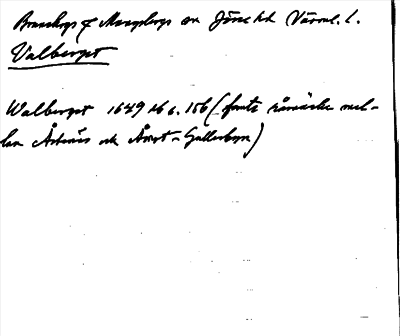 Brunskogs & Mangskogs sn Jösse hd Värml. l.
Valberget
Walberget 1649 Jb s. 156 (femte råmärke mel-
lan Årtnäs och Åmot-Gallerbyn)